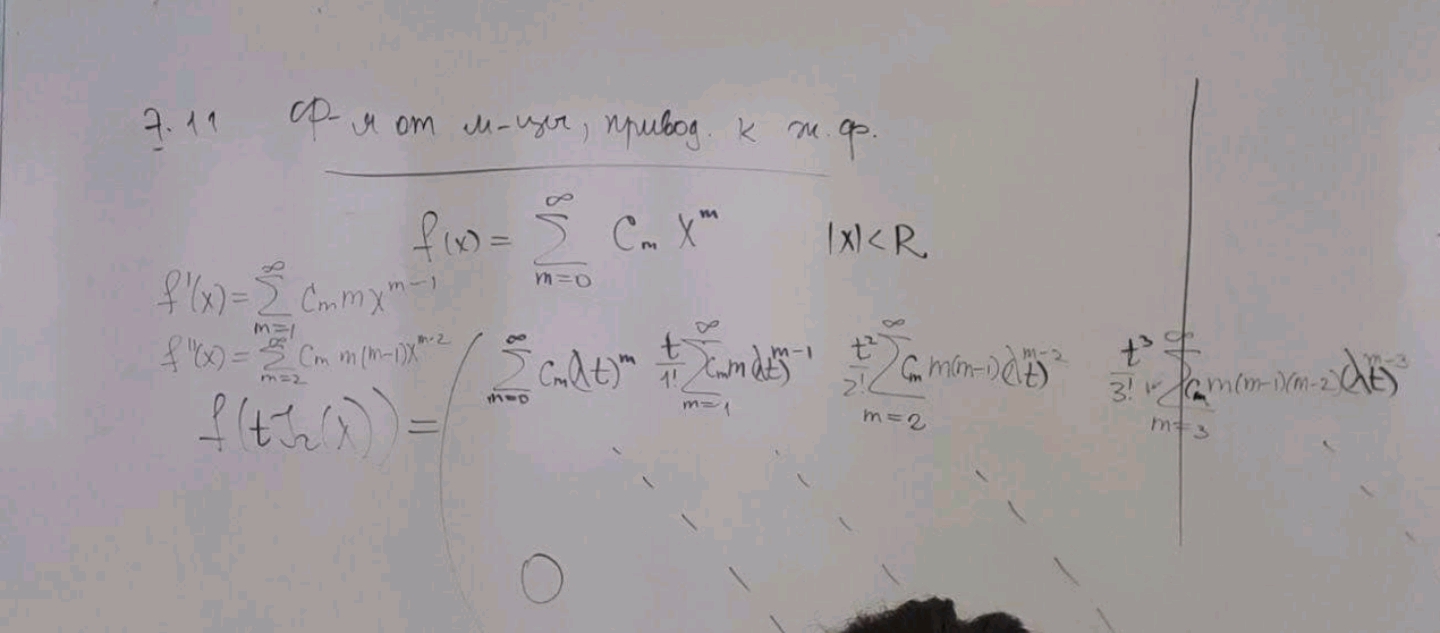 7.11 Ф-я от м-цы, привод. к ж.ф.
f(x) = ∑_{m=0}^{∞} C_m X^m |x|<R
f'(x) = ∑_{m=1}^{∞} C_m m x^{m-1}
f''(x) = ∑_{m=2}^{∞} C_m m(m-1)x^{m-2}
f(tJ_r(λ)) = ( ∑_{m=0}^{∞} C_m(λt)^m t/1! ∑_{m=1}^{∞} C_m m(λt)^{m-1} t²/2! ∑_{m=2}^{∞} C_m m(m-1)(λt)^{m-2} t³/3! ∑_{m=3}^{∞} C_m m(m-1)(m-2)(λt)^{m-3}
0